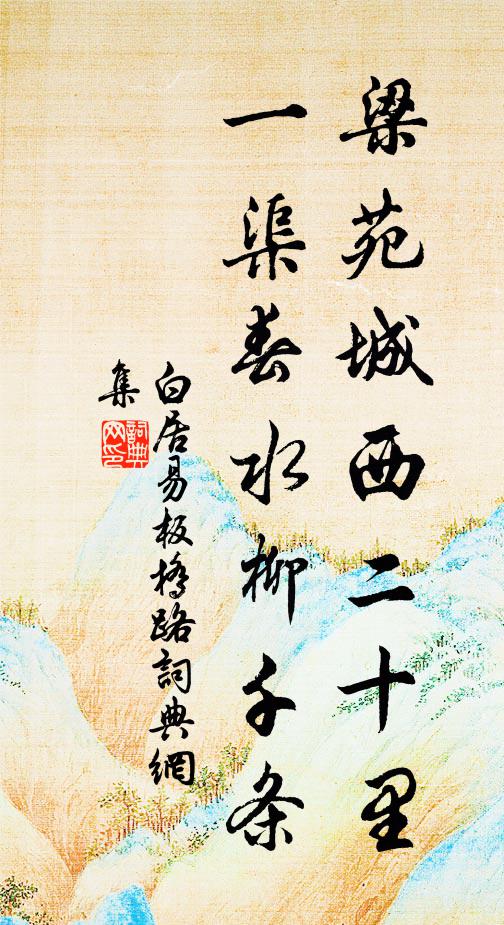 梁苑城西二十里
一渠春水柳千条
白居易板橋路詞典網
集
詞典
网印